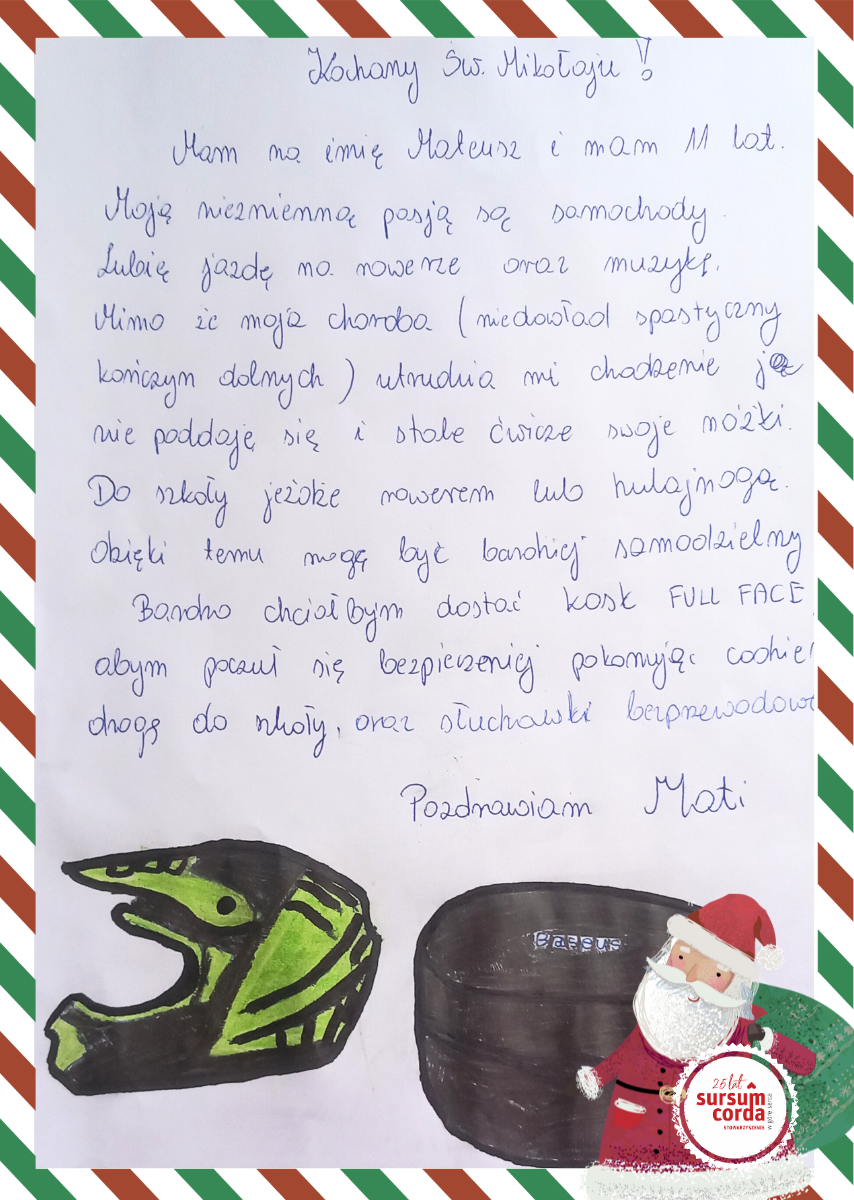 Kochany Św. Mikołaju!
Mam na imię Mateusz i mam 11 lat.
Moją niezmienną pasją są samochody.
Lubię jazdę na rowerze oraz muzykę.
Mimo że moja choroba (niedowład spastyczny
kończyn dolnych) utrudnia mi chodzenie ja
nie poddaję się i stale ćwiczę swoje nóżki.
Do szkoły jeżdżę rowerem lub hulajnogą.
Dzięki temu mogę być bardziej samodzielny
Bardzo chciałbym dostać kask FULL FACE
abym poczuł się bezpieczeniej pokonując codzie
drogę do szkoły, oraz słuchawki bezprzewodow
Pozdrawiam Mati
Baseus
25 lat
sursum
corda
STOWARZYSZENIE